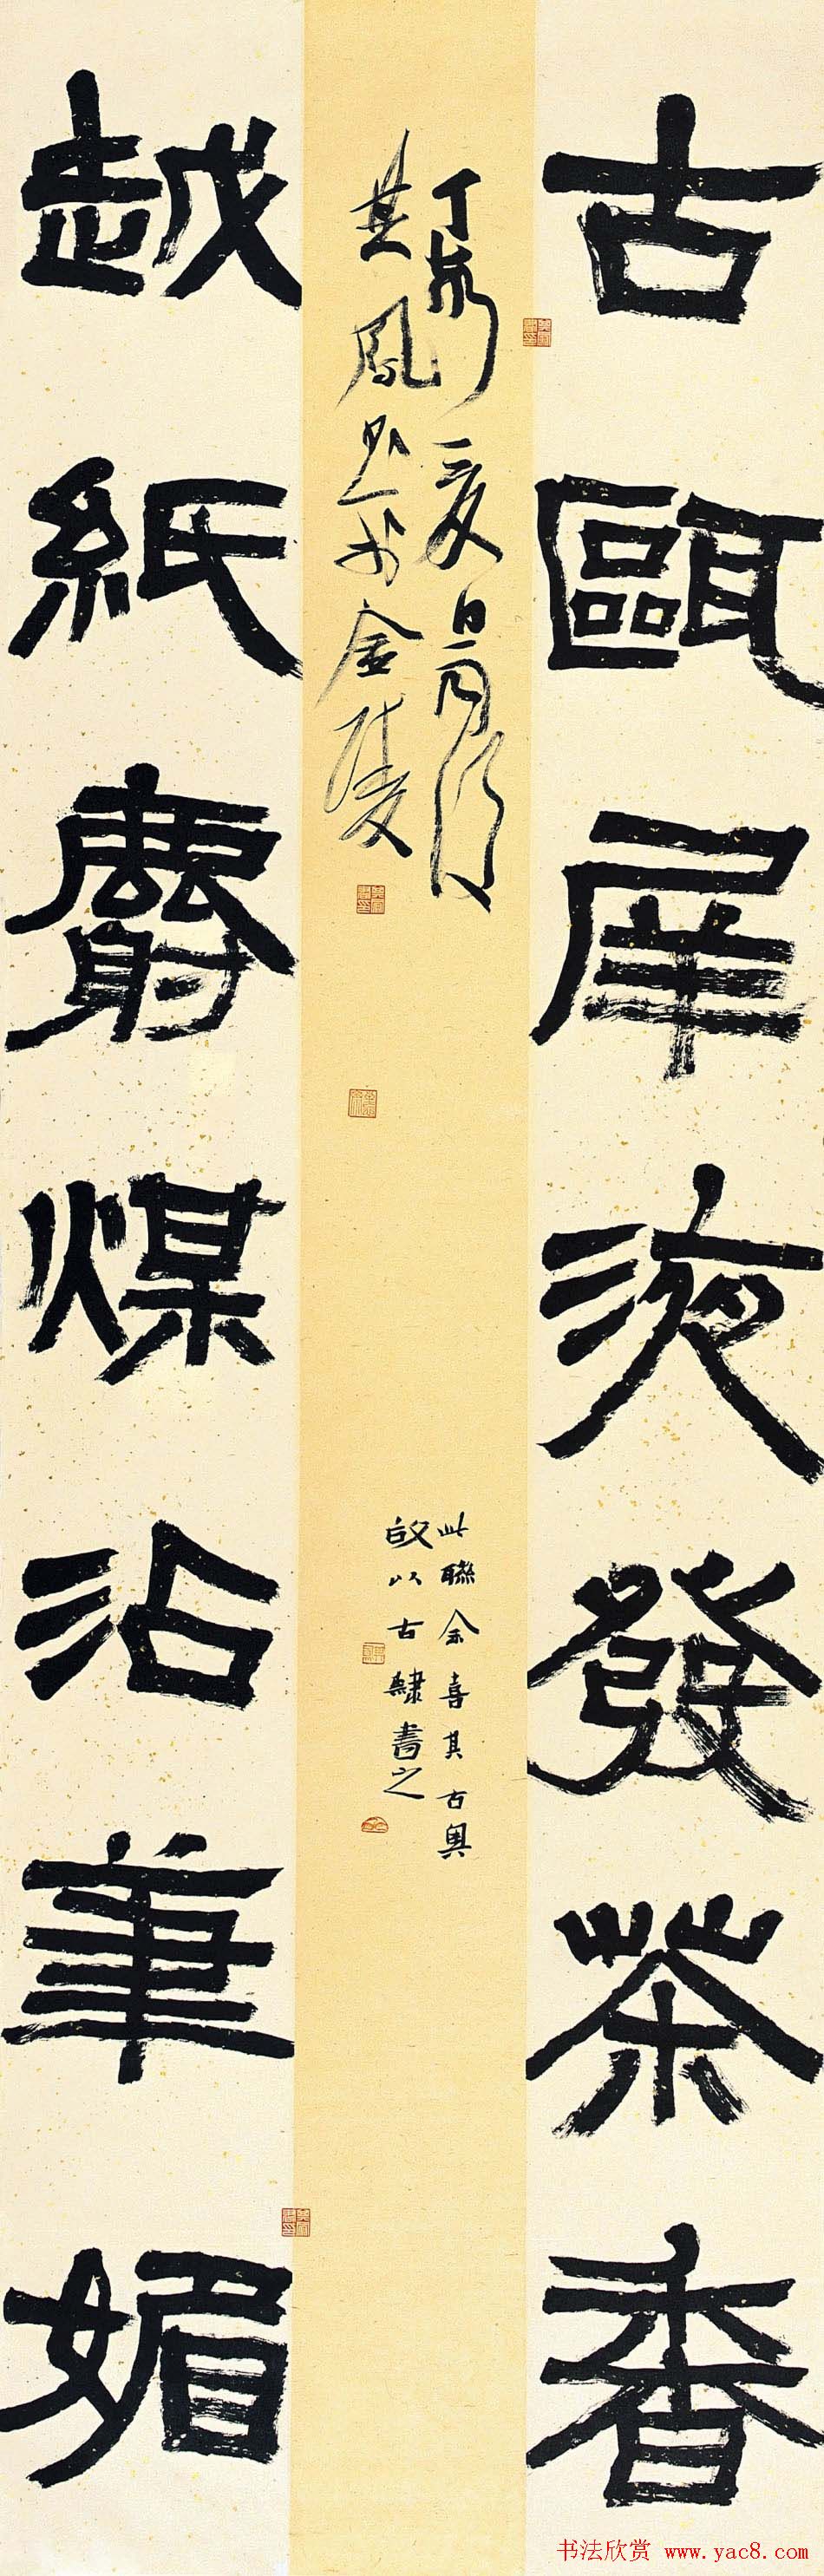 古甌犀液發茶香
丁亥夏日
於金陵
此聯余喜其古奥
故以古隸書之
越紙麝煤沾筆媚
书法欣赏 www.yac8.com